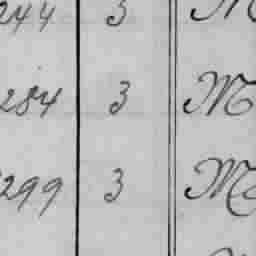 244 3 M
284 3 M
299 3 M